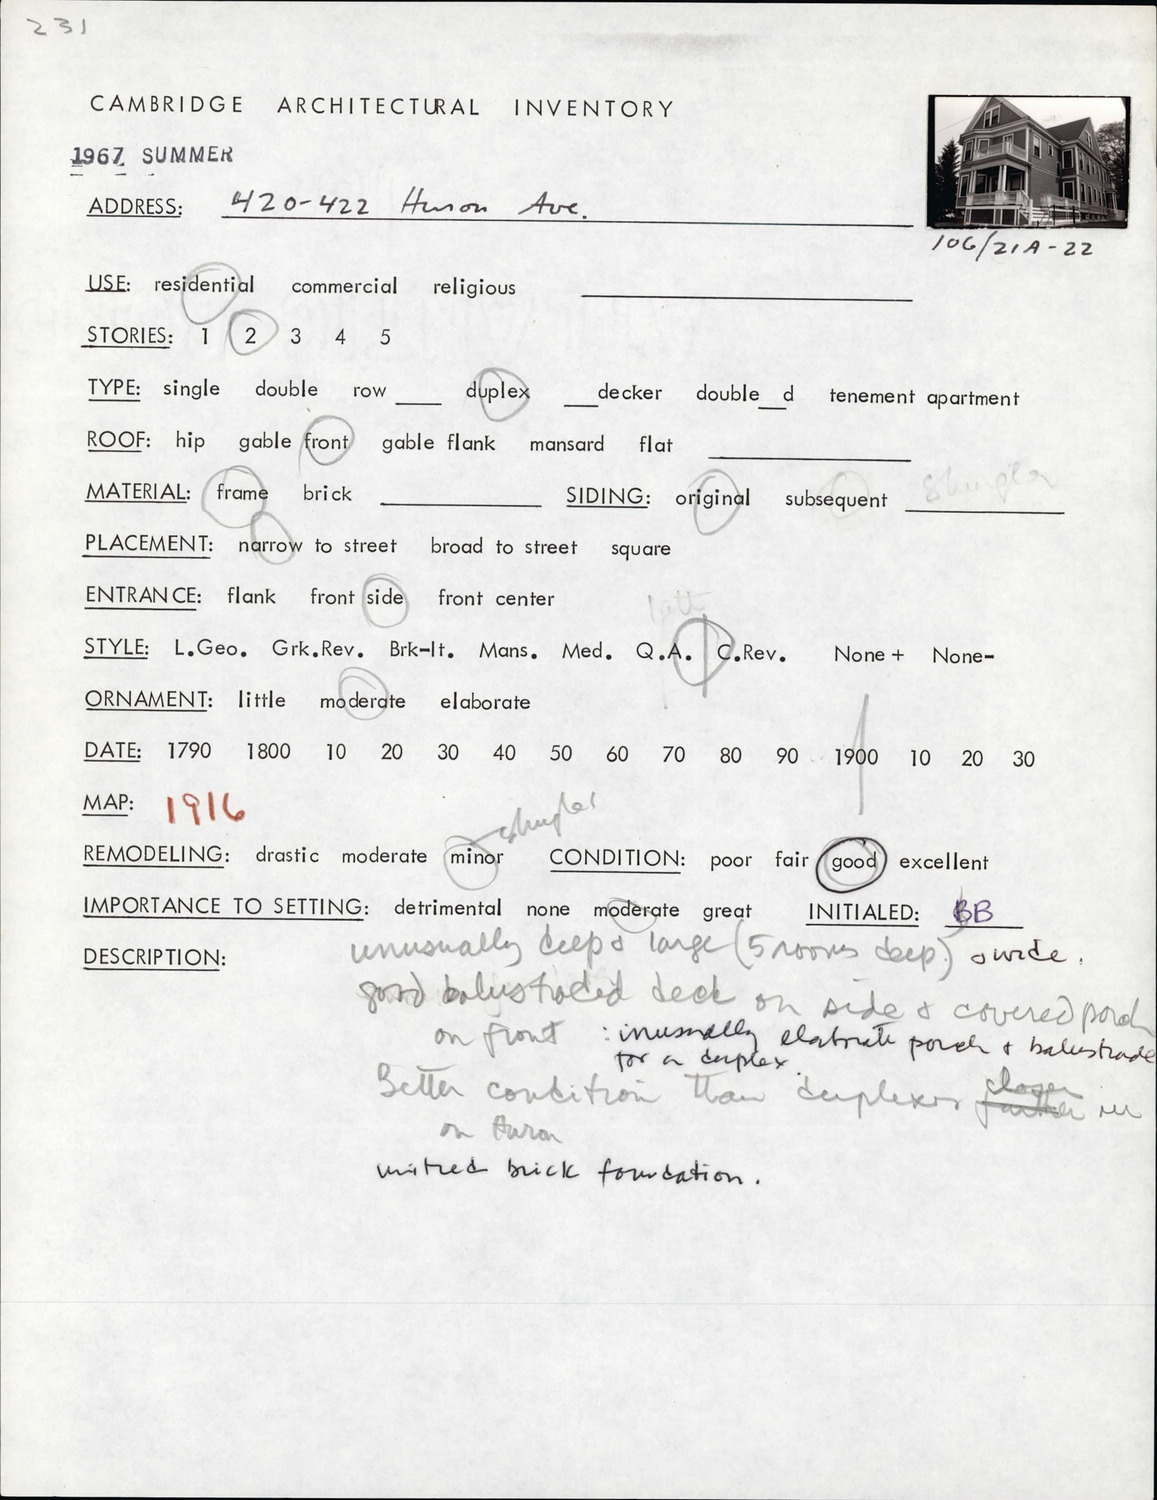 231
CAMBRIDGE ARCHITECTURAL INVENTORY
1967 SUMMER
ADDRESS: 420-422 Huron Ave.
10G/21A-22
USE: residential commercial religious
STORIES: 1 2 3 4 5
TYPE: single double row ____ duplex ___decker double__d tenement apartment
ROOF: hip gable front gable flank mansard flat
MATERIAL: frame brick ____ SIDING: original subsequent shingles
PLACEMENT: narrow to street broad to street square
ENTRANCE: flank front side front center
STYLE: L.Geo. Grk.Rev. Brk-It. Mans. Med. Q.A. C.Rev. None+ None-
ORNAMENT: little moderate elaborate
DATE: 1790 1800 10 20 30 40 50 60 70 80 90 1900 10 20 30
MAP: 1916
shingles
REMODELING: drastic moderate minor CONDITION: poor fair good excellent
IMPORTANCE TO SETTING: detrimental none moderate great INITIALED: BB
DESCRIPTION: unusually deep & large (5 rooms deep) & wide.
good balustraded deck on side & covered porch
on front : unusually elaborate porch & balustrade
for a duplex.
Better condition than duplexes further closer in
on Huron
mitred brick foundation.